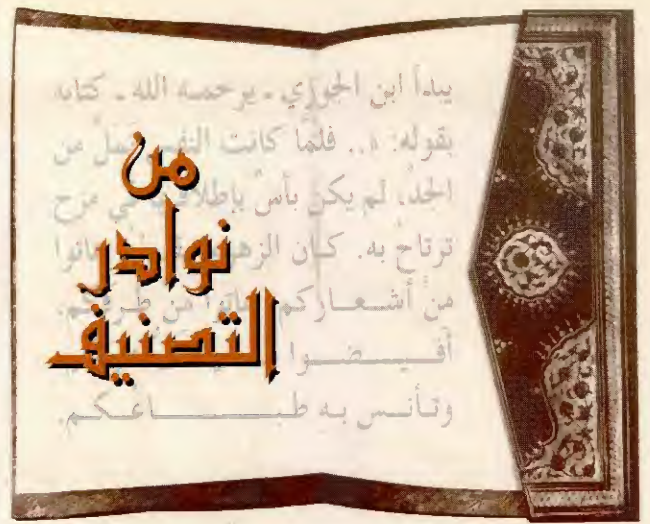 من
نوادر
التصنيف
يبدأ ابن الجوزي - يرحمه الله - كتابه
بقوله: «.. فلما كانت النفس تمل من
الجد، لم يكن بأس بإطلاقها في مزح
ترتاح به. كان الزهري هاتوا
من أشعاركم هاتوا من طرفكم.
أفيضوا
وتأنس به طباعكم.